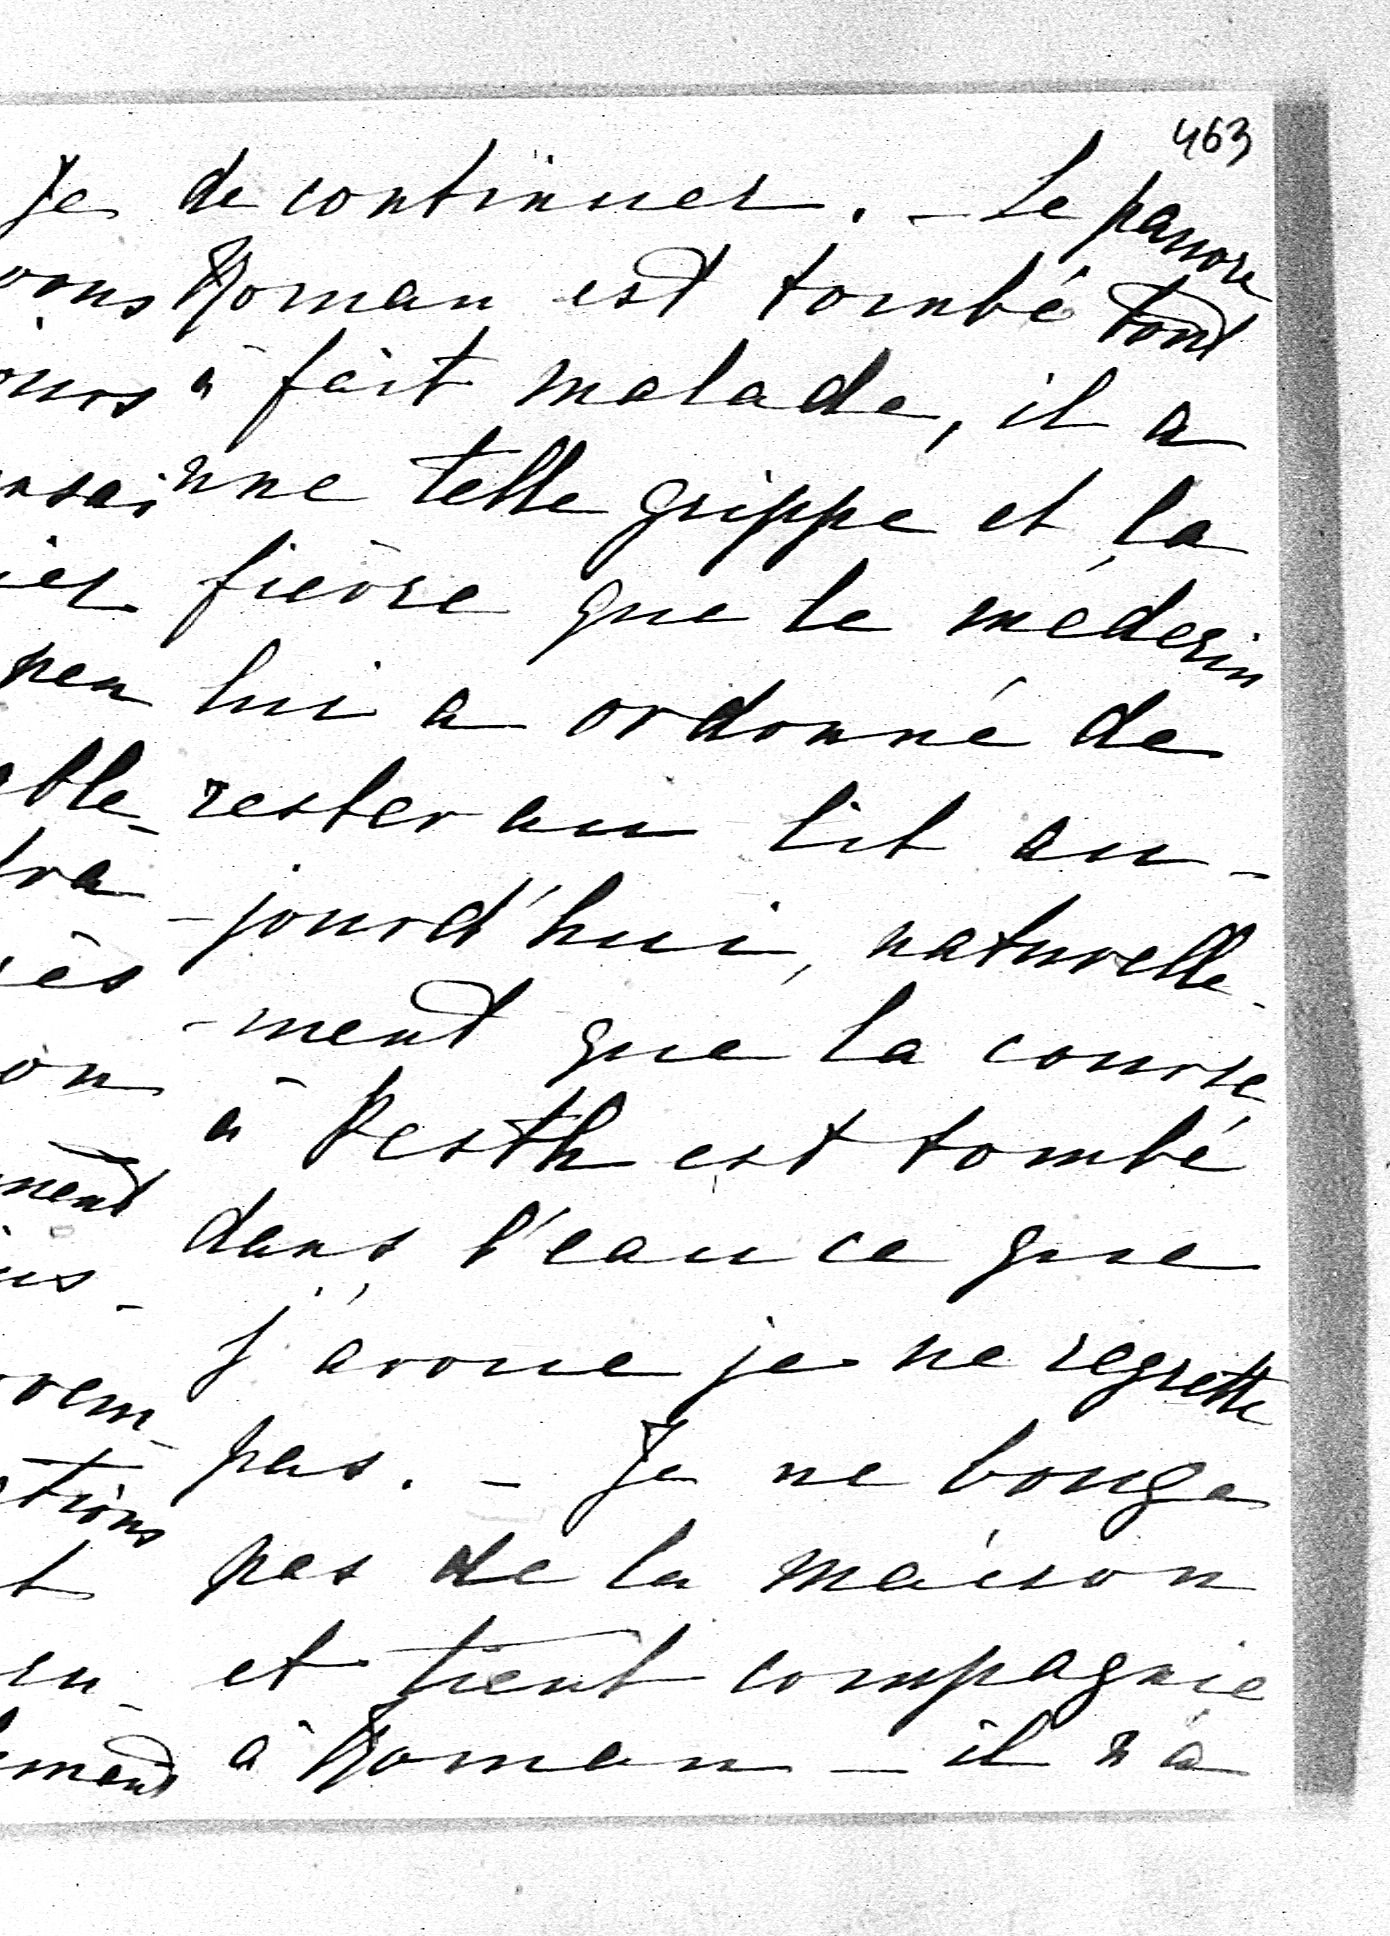 463
Je de continuer. - Le pauvre
vous Roman est tombé tout
ours à fait malade, il a
nsai une telle grippe et la
ier fièvre que le médecin
peu lui a ordonné de
able- rester au lit au-
tra -jourd'hui, naturelle-
ès -ment que la course
on à Pesth est tombé
ment dans l'eau ce que
us- j'avoue je ne regrette
vem- pas. - Je ne bouge
ctions pas de la maison
t et tient compagnie
ement à Roman - il n'a